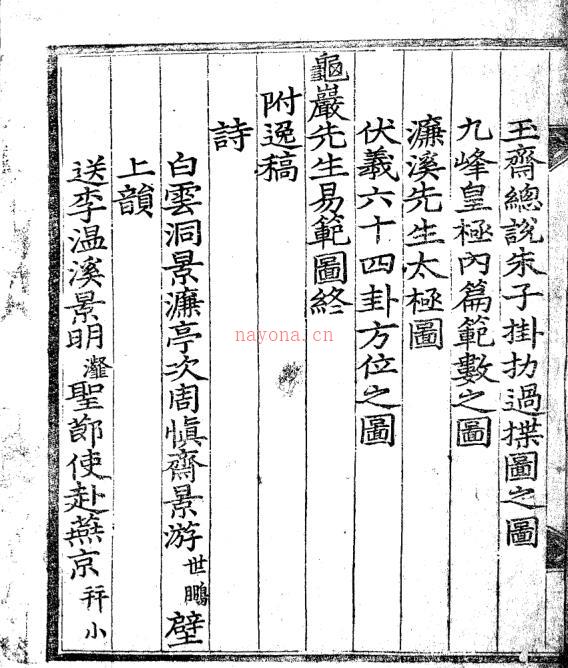 王齋總說朱子掛扐過揲圖之圖
九峰皇極內篇範數之圖
濂溪先生太極圖
伏羲六十四卦方位之圖
龜巖先生易範圖終
附逸稿
詩
白雲洞景濂亭次周愼齋景游世鵬壁
上韻
送李温溪景明瀣聖節使赴燕京幷小
nayona.cn